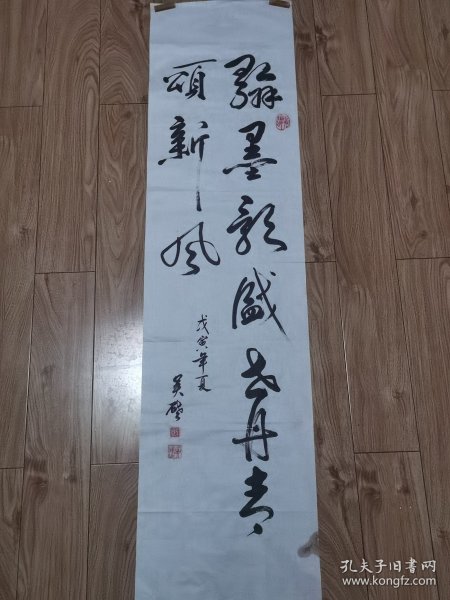 翰墨歌盛世丹青
頌新風
戊寅年夏
吴
孔夫子旧书网
www.kongfz.com